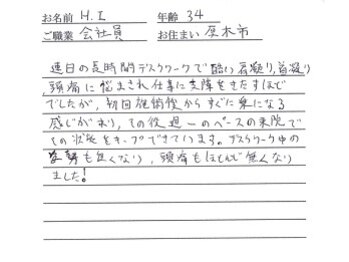 お名前 H.I 年齢 34
ご職業 会社員 お住まい 厚木市
連日の長時間デスクワークで酷い肩凝り,首凝り,
頭痛に悩まされ仕事に支障をきたすほど
でしたが、初回施術後からすぐに楽になる
感じがあり、その後週一のペースの来院で
その状態をキープできています。デスクワーク中の
も無くなり、頭痛もほとんど無くなり
ました!